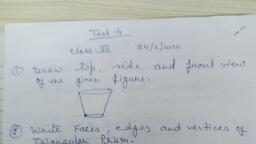 Test-4
Class-VIII 24/2/2021
① Draw top, side and front view
of the given figure.
② Write Faces, edges and vertices of
Triangular Prism.